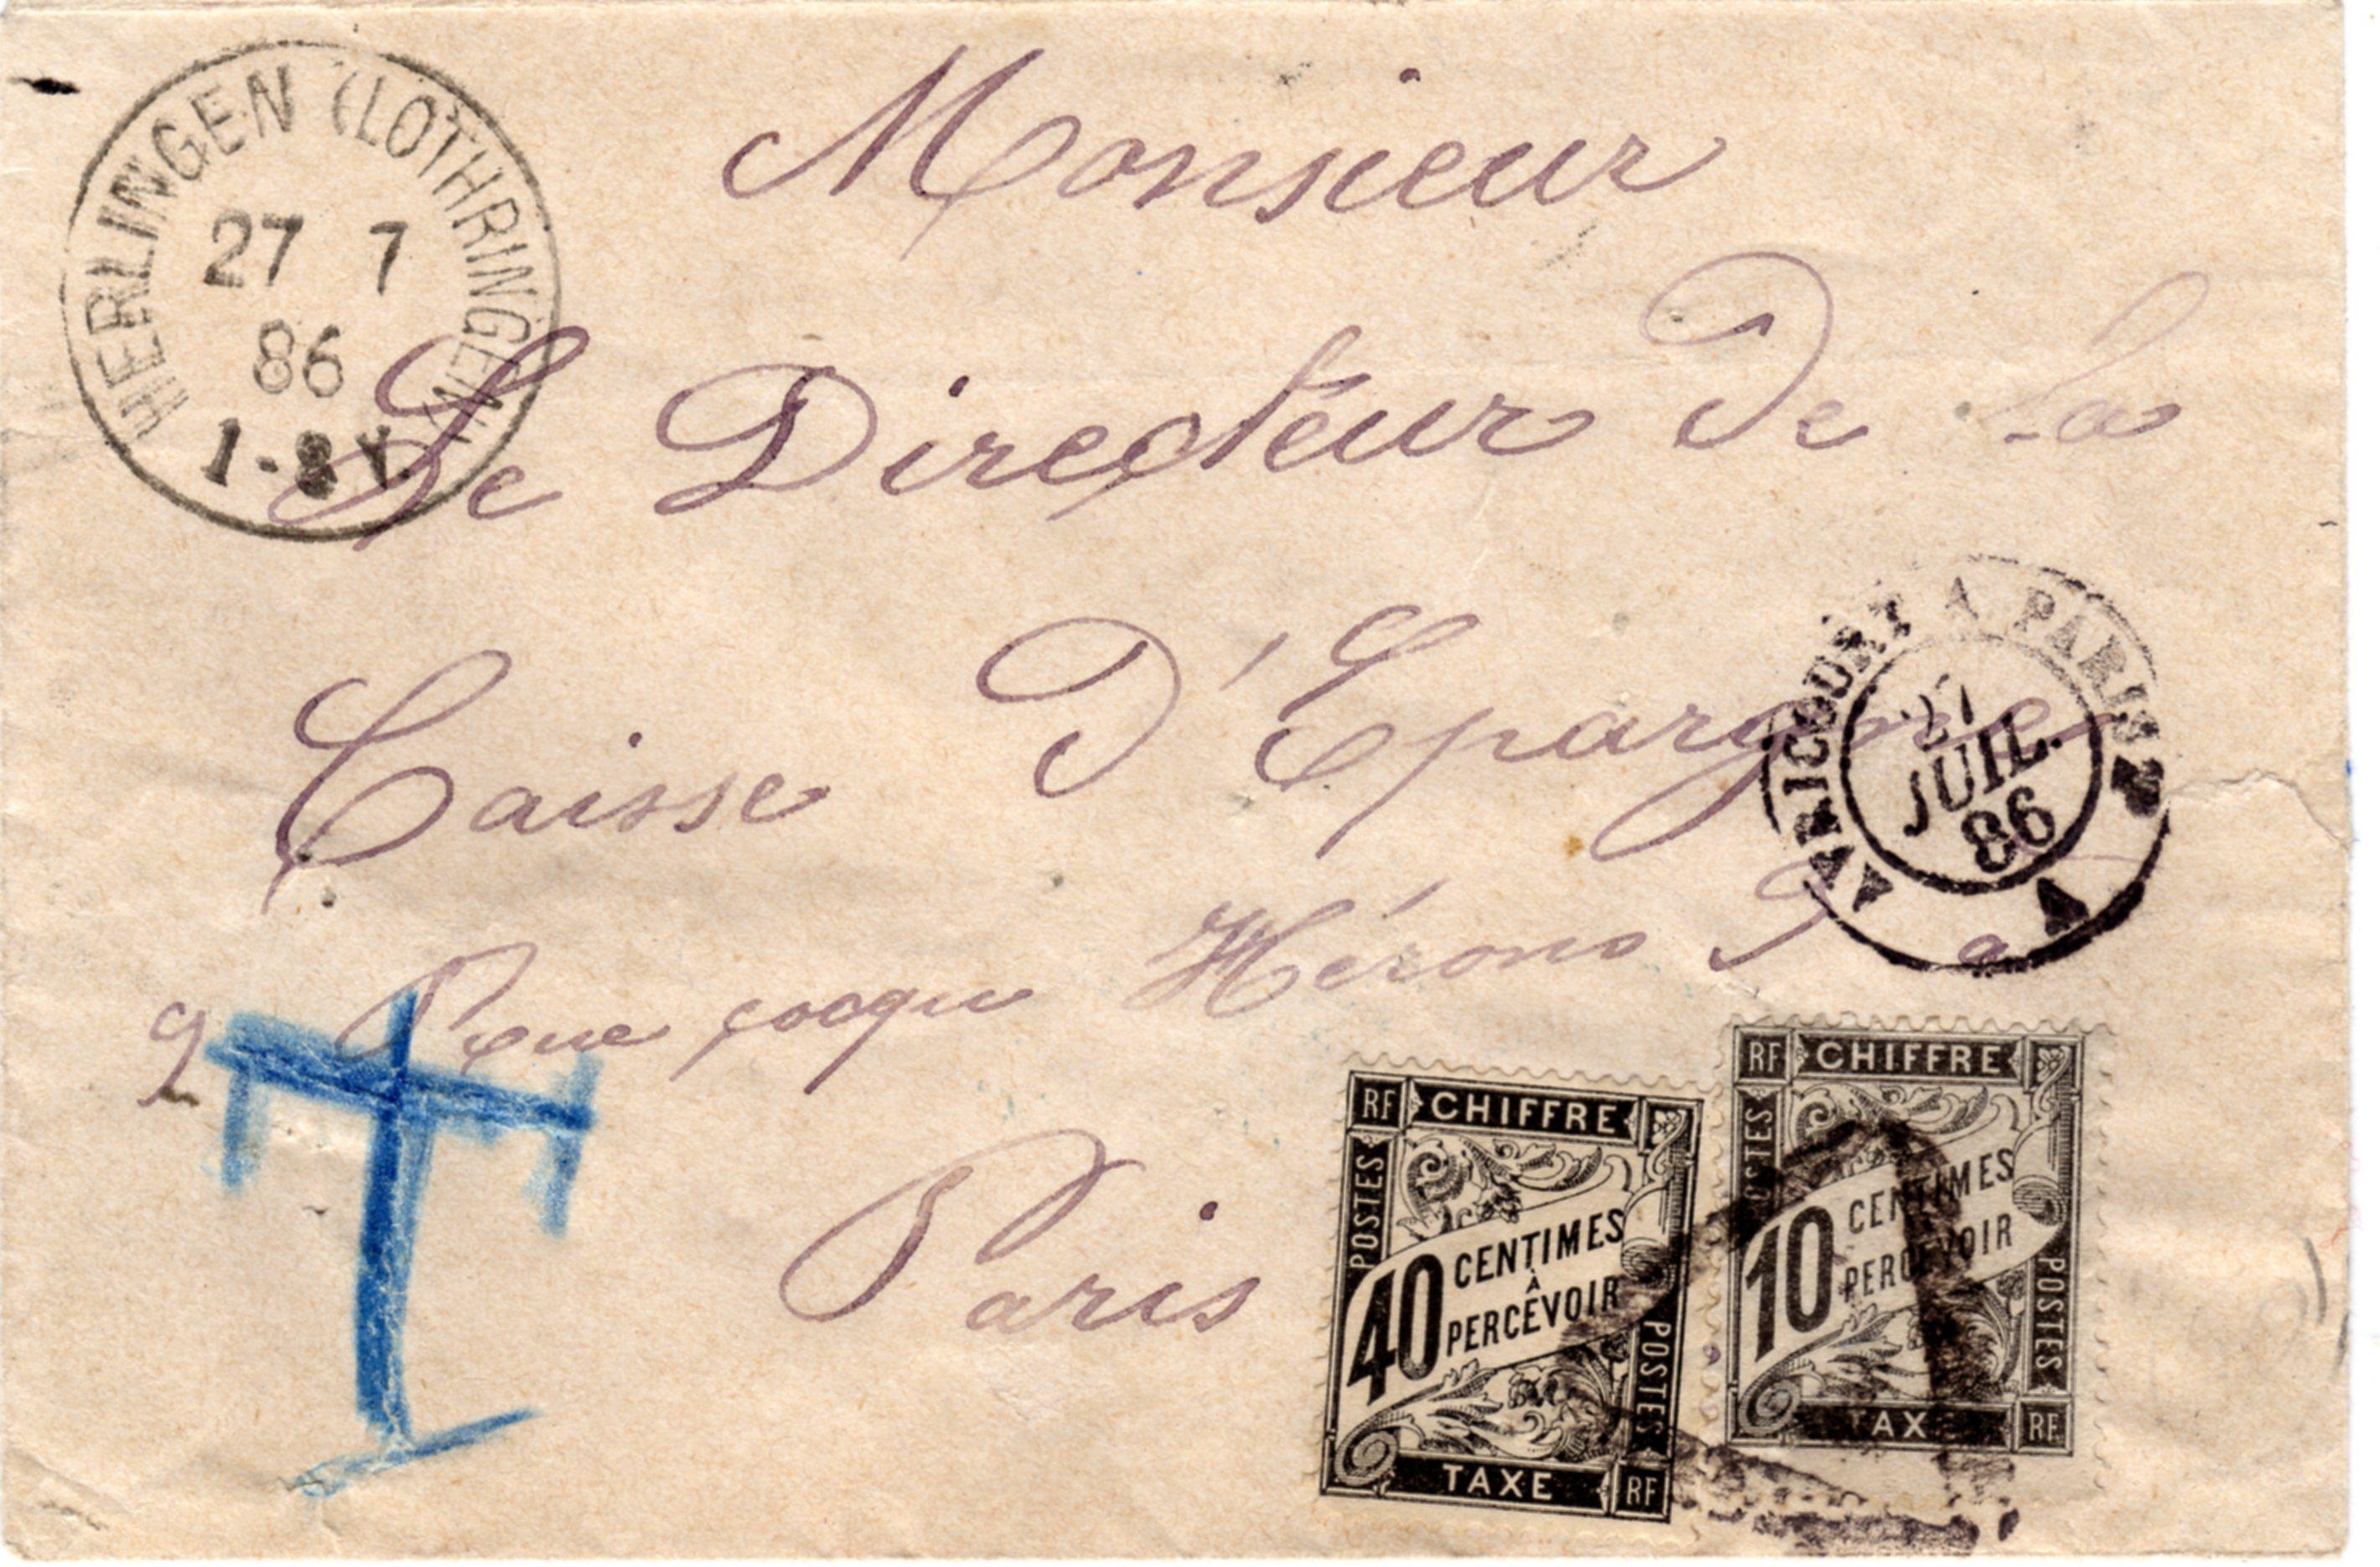 HERLINGEN (LOTHRINGEN)
27 7
86
1-2 N.
Monsieur
Le Directeur De La
Caisse D'Epargne
AVRICOURT A PARIS 2°
27
JUIL.
86
A
9 Rue cocqu Hérons
T
Paris
RF CHIFFRE
POSTES
40 CENTIMES
A
PERCEVOIR
POSTES
TAXE RF
RF CHIFFRE
POSTES
10 CENTIMES
PERCEVOIR
POSTES
TAXE RF